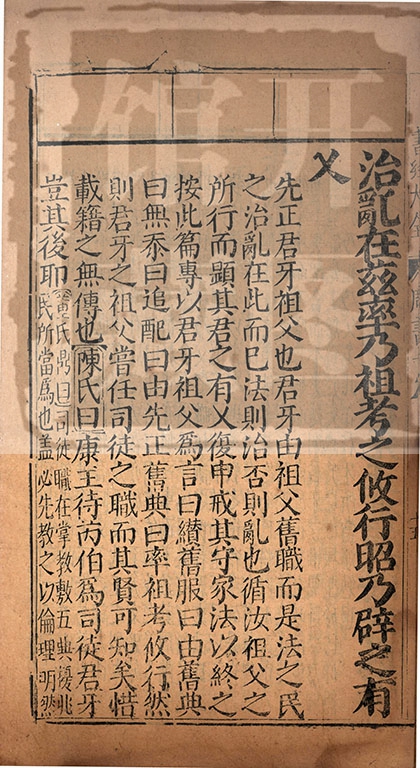 治亂在茲率乃祖考之攸行昭乃辟之有
乂
先正君牙祖父也君牙由祖父舊職而是法之民
之治亂在此而已法則治否則亂也循汝祖父之
所行而顯其君之有乂復申戒其守家法以終之
按此篇專以君牙祖父爲言曰纉舊服曰由舊典
曰無忝曰追配曰由先正舊典曰率祖考攸行然
則君牙之祖父嘗任司徒之職而其賢可知矣惜
載籍之無傳也陳氏曰康王時芮伯爲司徒君牙
豈其後耶 氏鼎曰司徒職在掌教敷五典擾兆
民所當爲也蓋必先教之以倫理明然